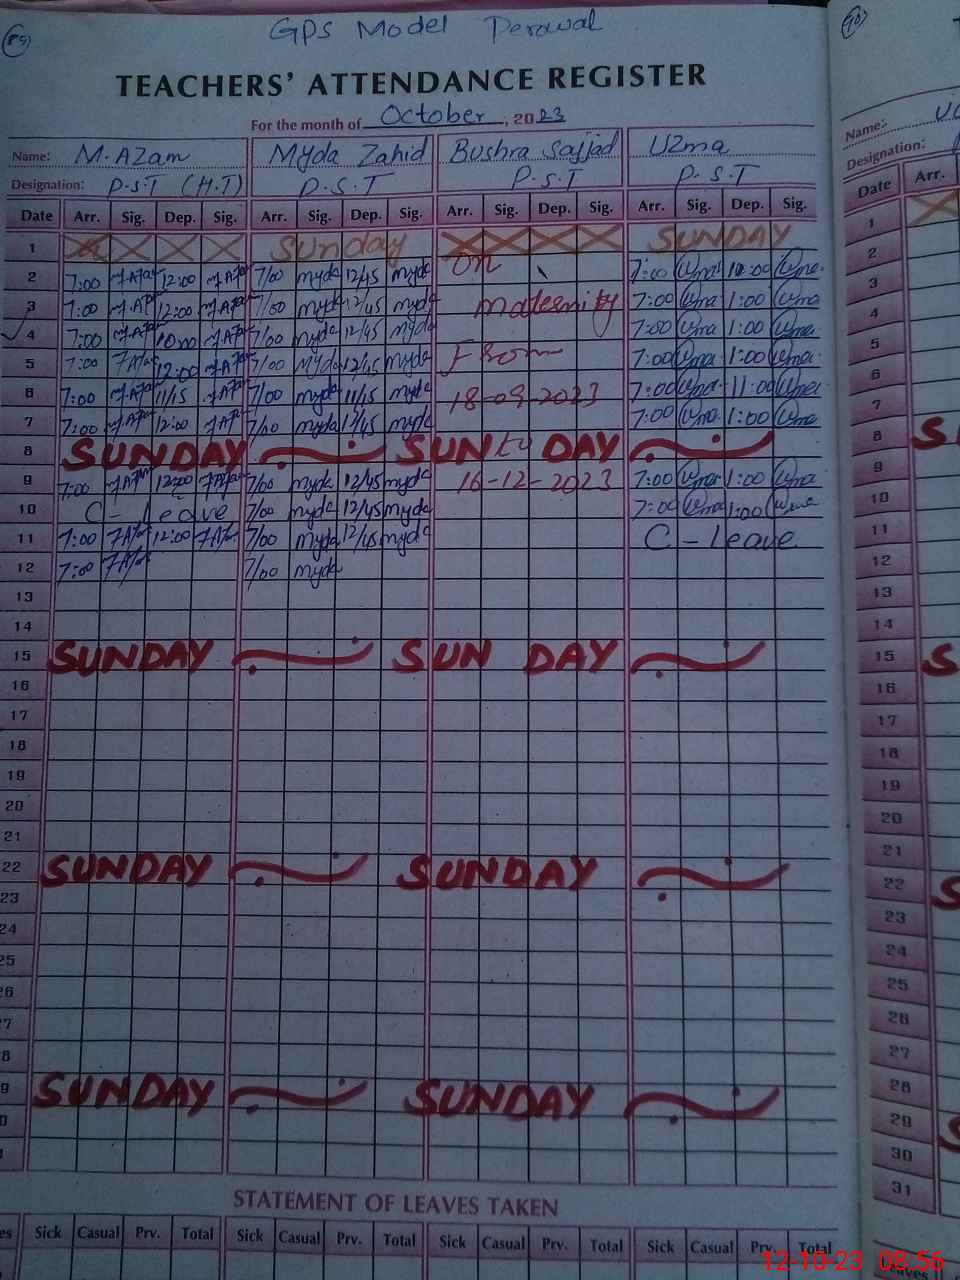 89
GPS Model Perowal
TEACHERS' ATTENDANCE REGISTER
For the month of October, 2023
Name: M. Azam Myda Zahid Bushra Sajjad Uzma
Designation: P.S.T (H.T) P.S.T P.S.T P.S.T
Date Arr. Sig. Dep. Sig. Arr. Sig. Dep. Sig. Arr. Sig. Dep. Sig. Arr. Sig. Dep. Sig.
1 Sunday SUNDAY
2 7:00 12:00 7/00 myda 12/45 myda On 7:00 Uzma Uzma
3 7:00 12:00 7/00 myda 12/45 myda maternity 7:00 Uzma 1:00 Uzma
4 7:00 7/00 myda 12/45 myda 7:00 Uzma 1:00 Uzma
5 7:00 12:00 7/00 Myda 12/45 myda From 7:00 Uzma 1:00 Uzma
6 7:00 11/15 7/00 myda 11/15 myda 18-09-2023 7:00 Uzma 11:00 Uzma
7 7:00 12:00 7/00 myda 12/45 myda 7:00 Uzma 1:00 Uzma
8 SUNDAY SUN to DAY
9 7:00 12:00 7/00 myda 12/45 myda 16-12-2023 7:00 Uzma 1:00 Uzma
10 C-leave 7/00 myda 12/45 myda 7:00 Uzma 1:00 Uzma
11 7:00 12:00 7/00 myda 12/45 myda C-leave
12 7:00 7/00 myda
13
14
15 SUNDAY SUN DAY
16
17
18
19
20
21
22 SUNDAY SUNDAY
23
24
25
26
7
8
9 SUNDAY SUNDAY
0
STATEMENT OF LEAVES TAKEN
es Sick Casual Prv. Total Sick Casual Prv. Total Sick Casual Prv. Total Sick Casual Prv. Total
90
Name:
Designation:
Date Arr.
1
2
3
4
5
6
7
8 S
9
10
11
12
13
14
15 S
16
17
18
19
20
21
22 S
23
24
25
26
27
28
29 S
30
31
12-10-23 08:56